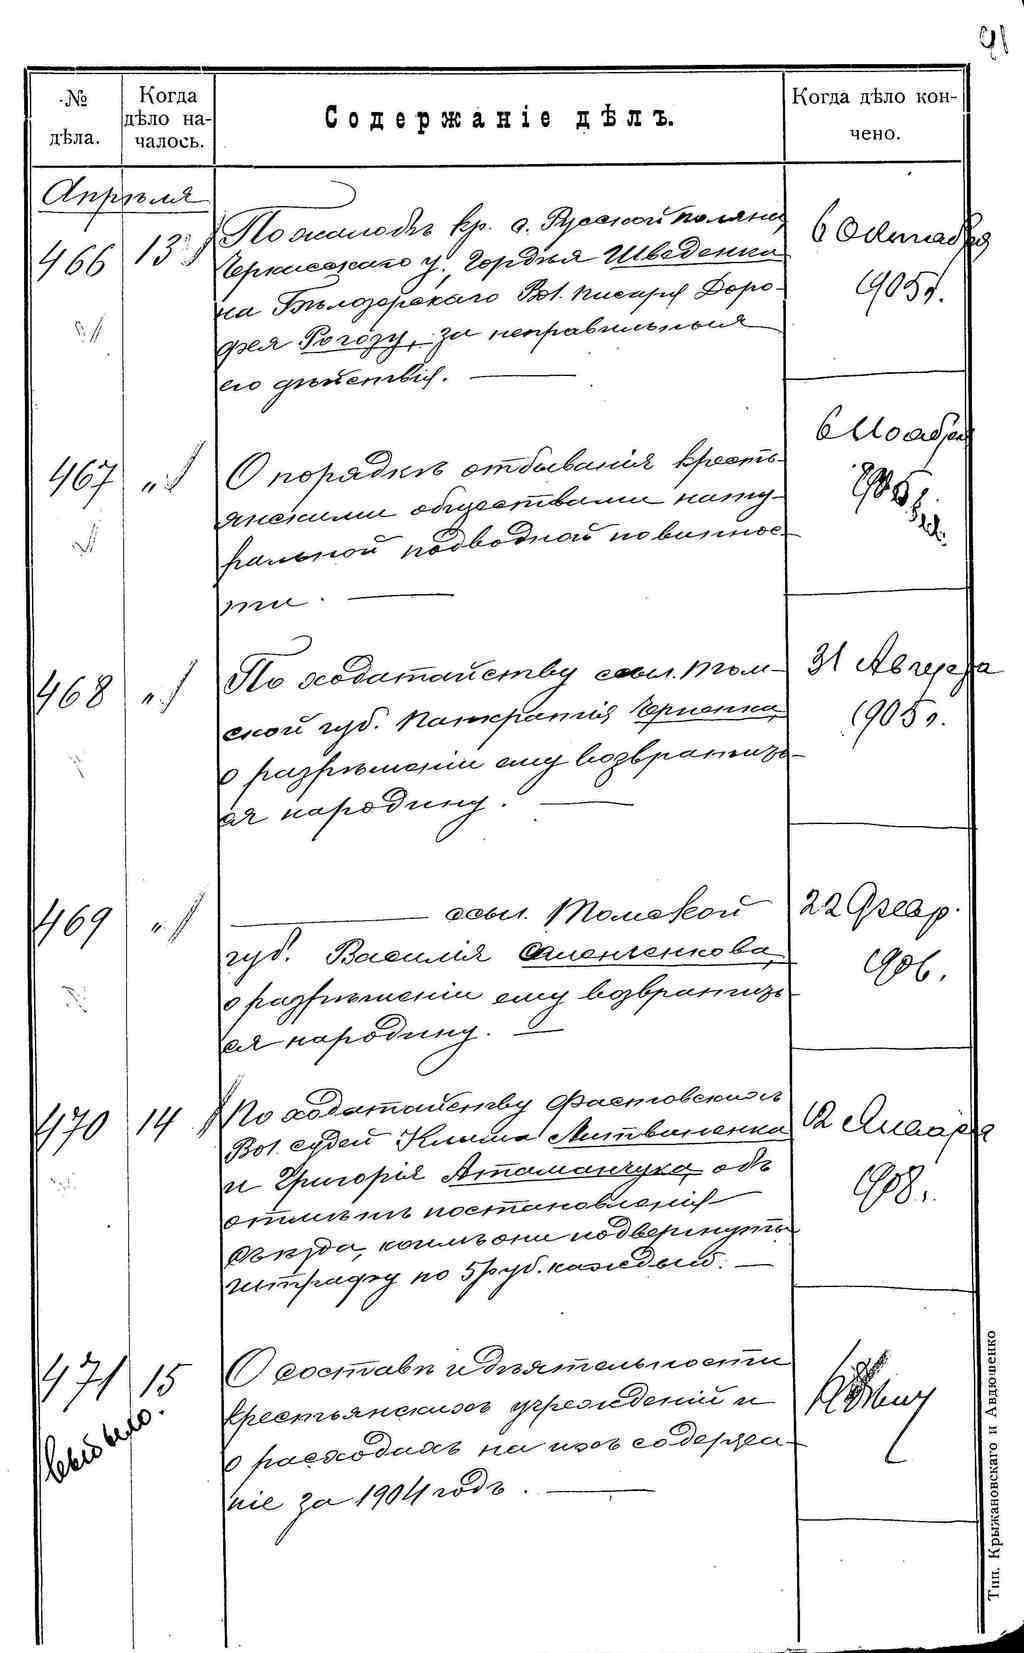 91
№ дѣла.
Когда дѣло началось.
Содержаніе дѣлъ.
Когда дѣло кончено.
Апрѣля
466
13
По жалобѣ кр. с. Русской поляны,
Черкасскаго у., Гордѣя Шведенка
на Бѣлозерскаго Вол. писаря Доро-
фея Рогозу, за неправильныя
его дѣйствія.
6 Октября
1905 г.
467
"
О порядкѣ отбыванія кресть-
янскими обществами нату-
ральной подводной повиннос-
ти.
6 Ноября
1905
468
"
По ходатайству ссыл. Том-
ской губ. Панкратія Черненка,
о разрѣшеніи ему возвратить-
ся народину.
31 Августа
1905 г.
469
"
ссыл. Томской
губ. Василія
о разрѣшеніи ему возвратить-
ся народину.
22 Февр.
1906.
470
14
По ходатайству Фастовскихъ
Вол. судей Клима Литвиненка
и Григорія Атаманчука, объ
отмѣнѣ постановленія
съѣзда, коимъ они подвергнуты
штрафу по 5 руб. каждый.
12 Января
1908 г.
471
15
выбыло.
О составѣ и дѣятельности
крестьянскихъ учрежденій и
о расходахъ на ихъ содержа-
ніе за 1904 годъ.
Тип. Крыжановскаго и Авдюшенко